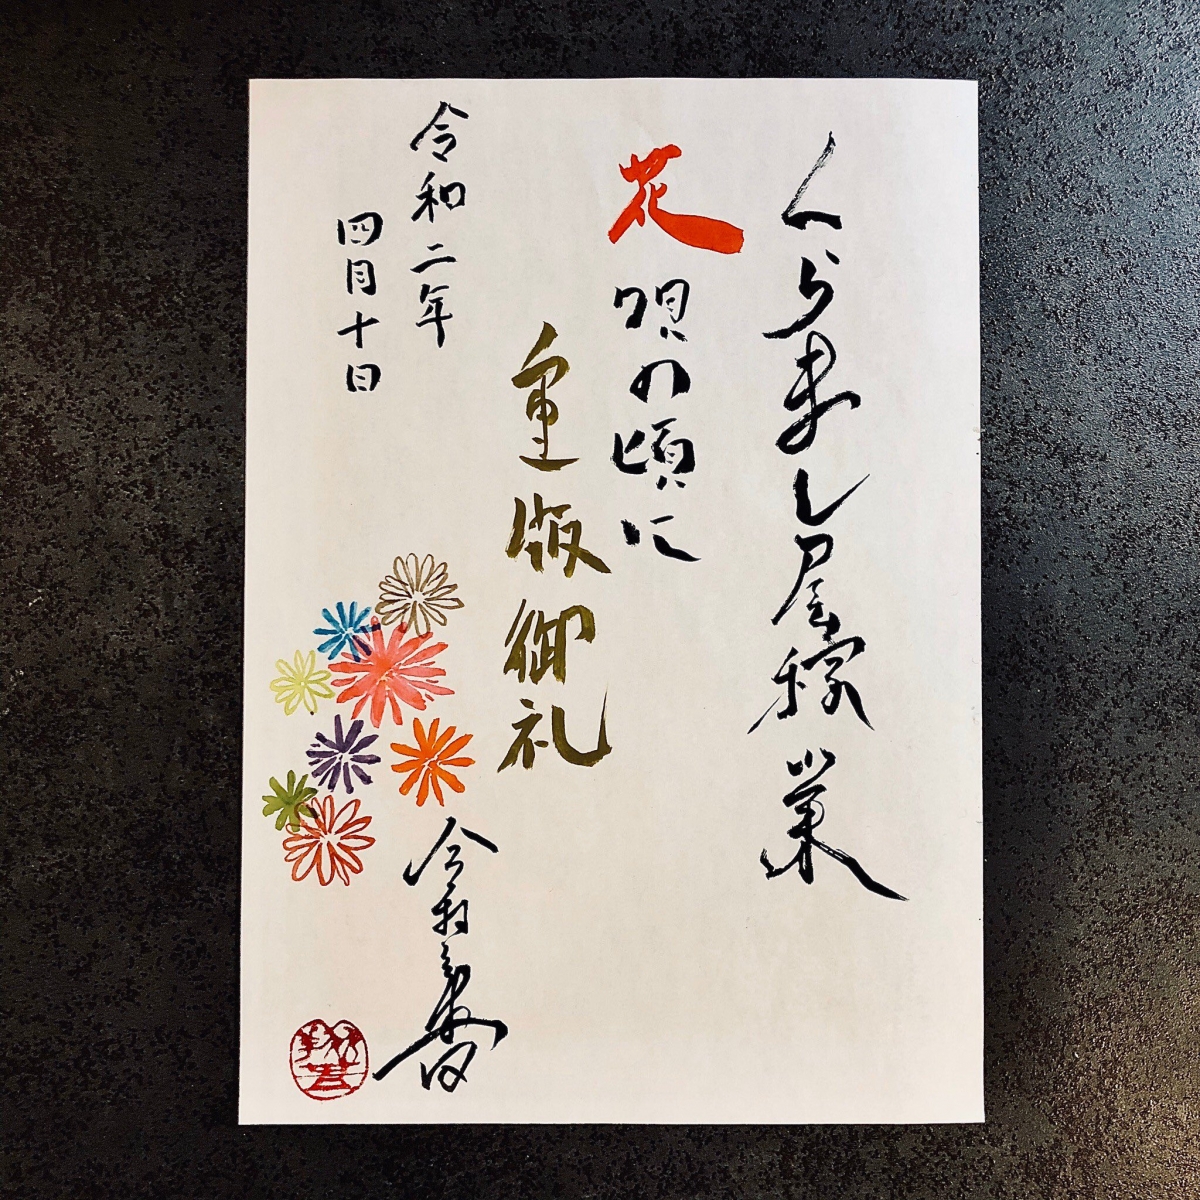 くらまし屋稼業
花唄の頃に
重版御礼
令和二年
四月十日
今村翔吾